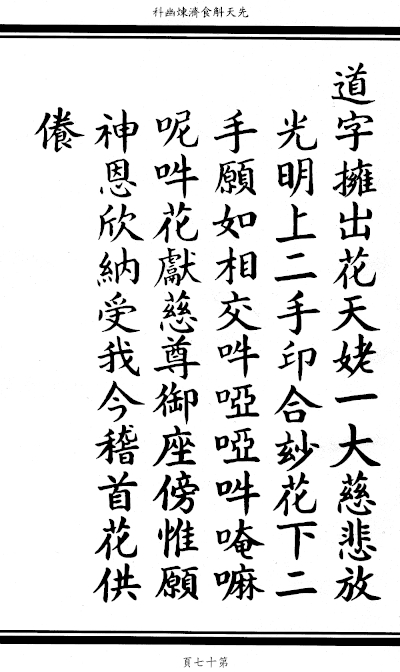 先天斛食濟煉幽科
道字擁出花天姥一大慈悲放
光明上二手印合玅花下二
手願如相交吽啞啞吽唵嘛
呢吽花獻慈尊御座傍惟願
神恩欣納受我今稽首花供
餋
第十七頁